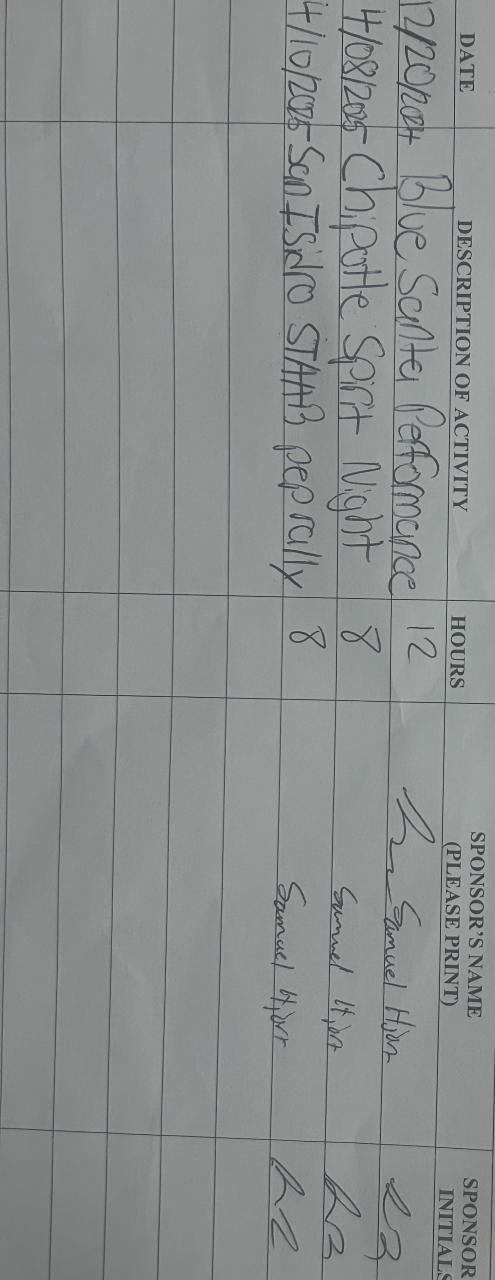 DATE DESCRIPTION OF ACTIVITY HOURS SPONSOR'S NAME (PLEASE PRINT) SPONSOR INITIALS
12/20/2024 Blue Santa Performance 12 Samuel
4/08/2025 Chipotle Spirit Night 8 Samuel
4/10/2025 San Isidro STAAR pep rally 8 Samuel